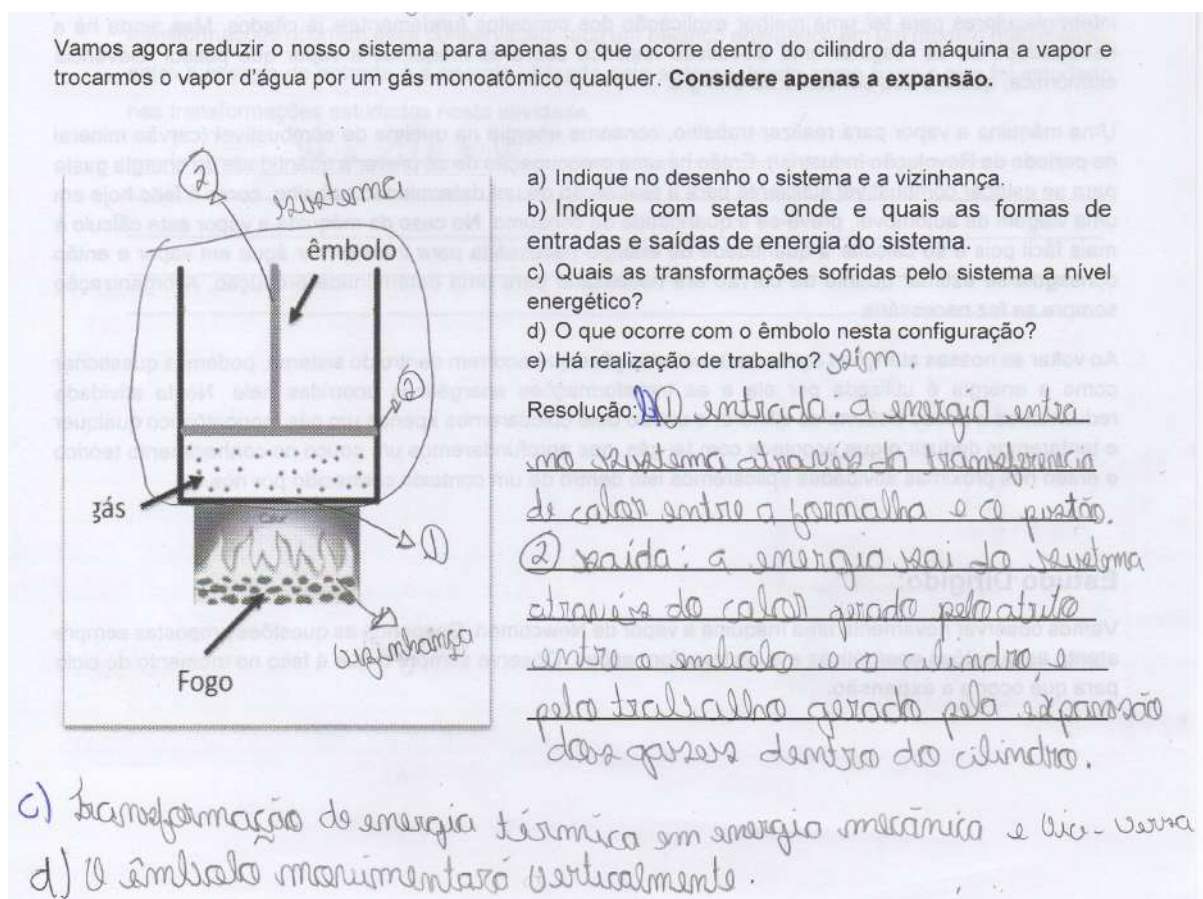 Vamos agora reduzir o nosso sistema para apenas o que ocorre dentro do cilindro da máquina a vapor e
trocarmos o vapor d'água por um gás monoatômico qualquer. Considere apenas a expansão.
2
sistema
êmbolo
2
gás
Calor
1
vizinhança
Fogo
a) Indique no desenho o sistema e a vizinhança.
b) Indique com setas onde e quais as formas de
entradas e saídas de energia do sistema.
c) Quais as transformações sofridas pelo sistema a nível
energético?
d) O que ocorre com o êmbolo nesta configuração?
e) Há realização de trabalho? sim.
Resolução: 1 entrada: a energia entra
no sistema através da transferência
de calor entre a fornalha e o pistão.
2 saída: a energia sai do sistema
através do calor gerado pelo atrito
entre o embolo e o cilindro e
pelo trabalho gerado pela expansão
dos gases dentro do cilindro.
c) transformação de energia térmica em energia mecânica e vice-versa
d) O êmbolo movimentará verticalmente.